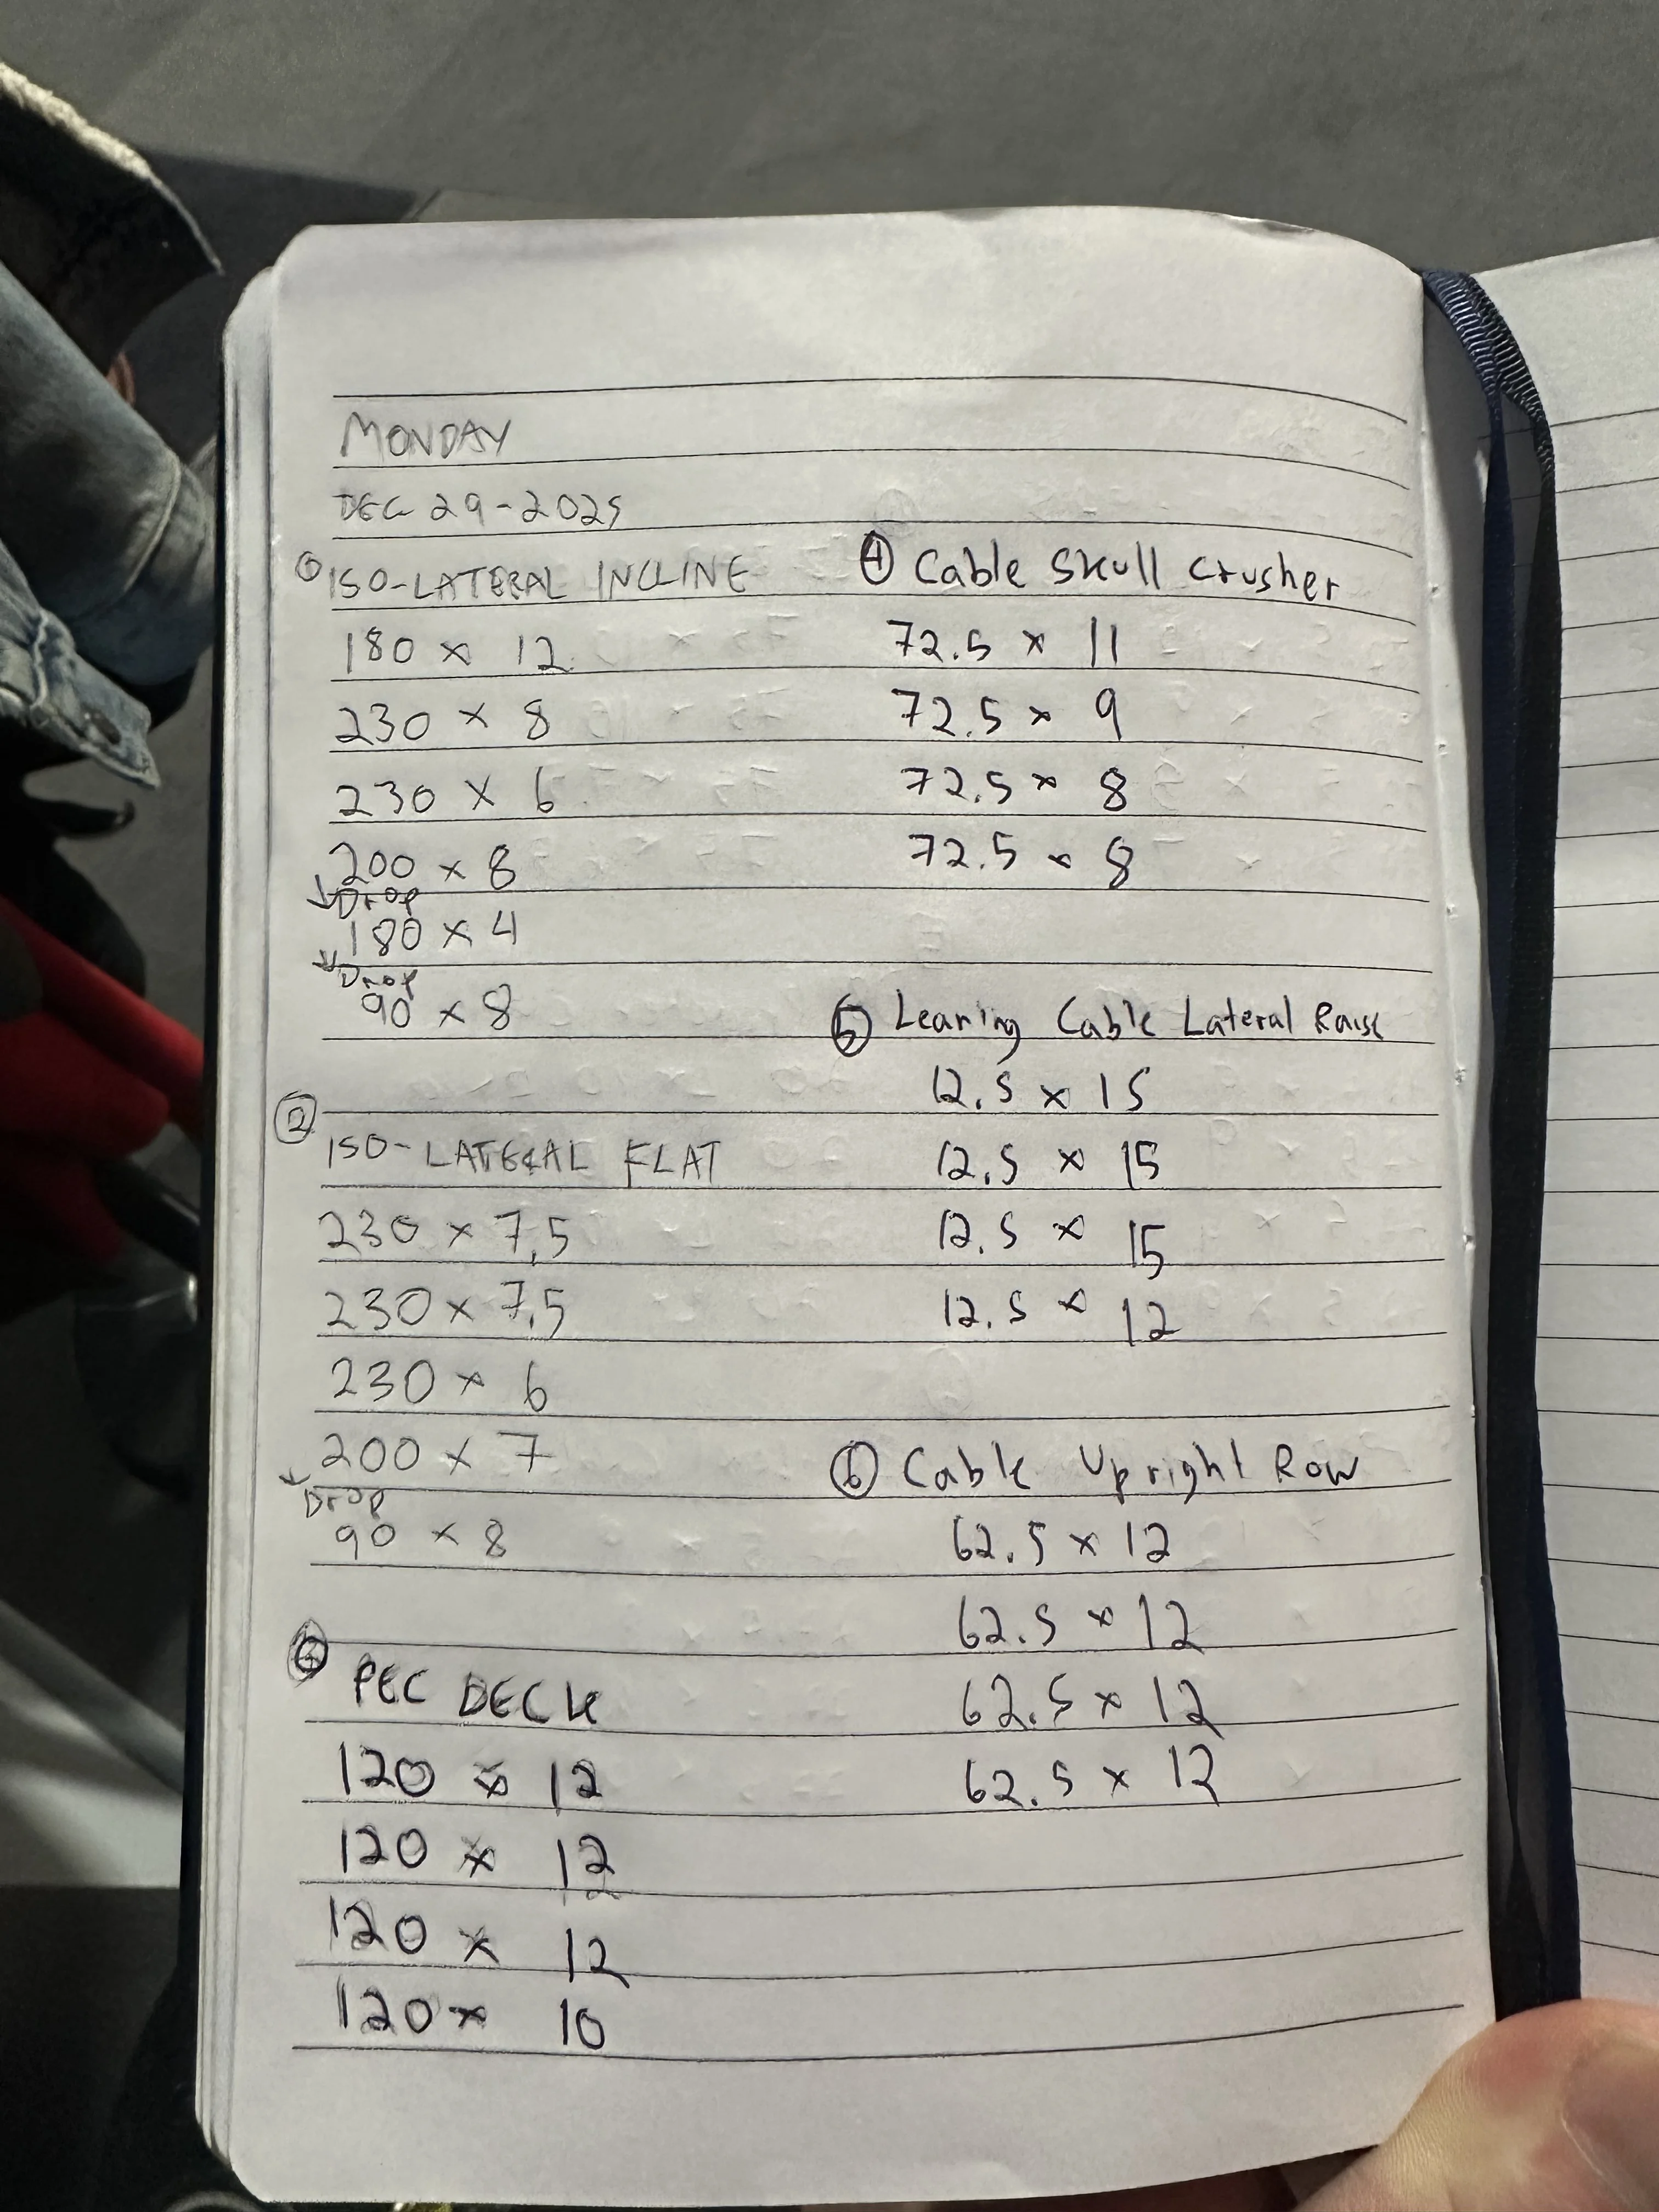 MONDAY
DEC 29-2025
① ISO-LATERAL INCLINE
180 x 12
230 x 8
230 x 6
200 x 8
↓ Drop
180 x 4
↓ Drop
90 x 8
②
ISO-LATERAL FLAT
230 x 7,5
230 x 7,5
230 x 6
200 x 7
↓ Drop
90 x 8
③ PEC DECK
120 x 12
120 x 12
120 x 12
120 x 10
④ Cable Skull Crusher
72.5 x 11
72.5 x 9
72.5 x 8
72.5 x 8
⑤ Leaning Cable Lateral Raise
12.5 x 15
12.5 x 15
12.5 x 15
12.5 x 12
⑥ Cable Upright Row
62.5 x 12
62.5 x 12
62.5 x 12
62.5 x 12